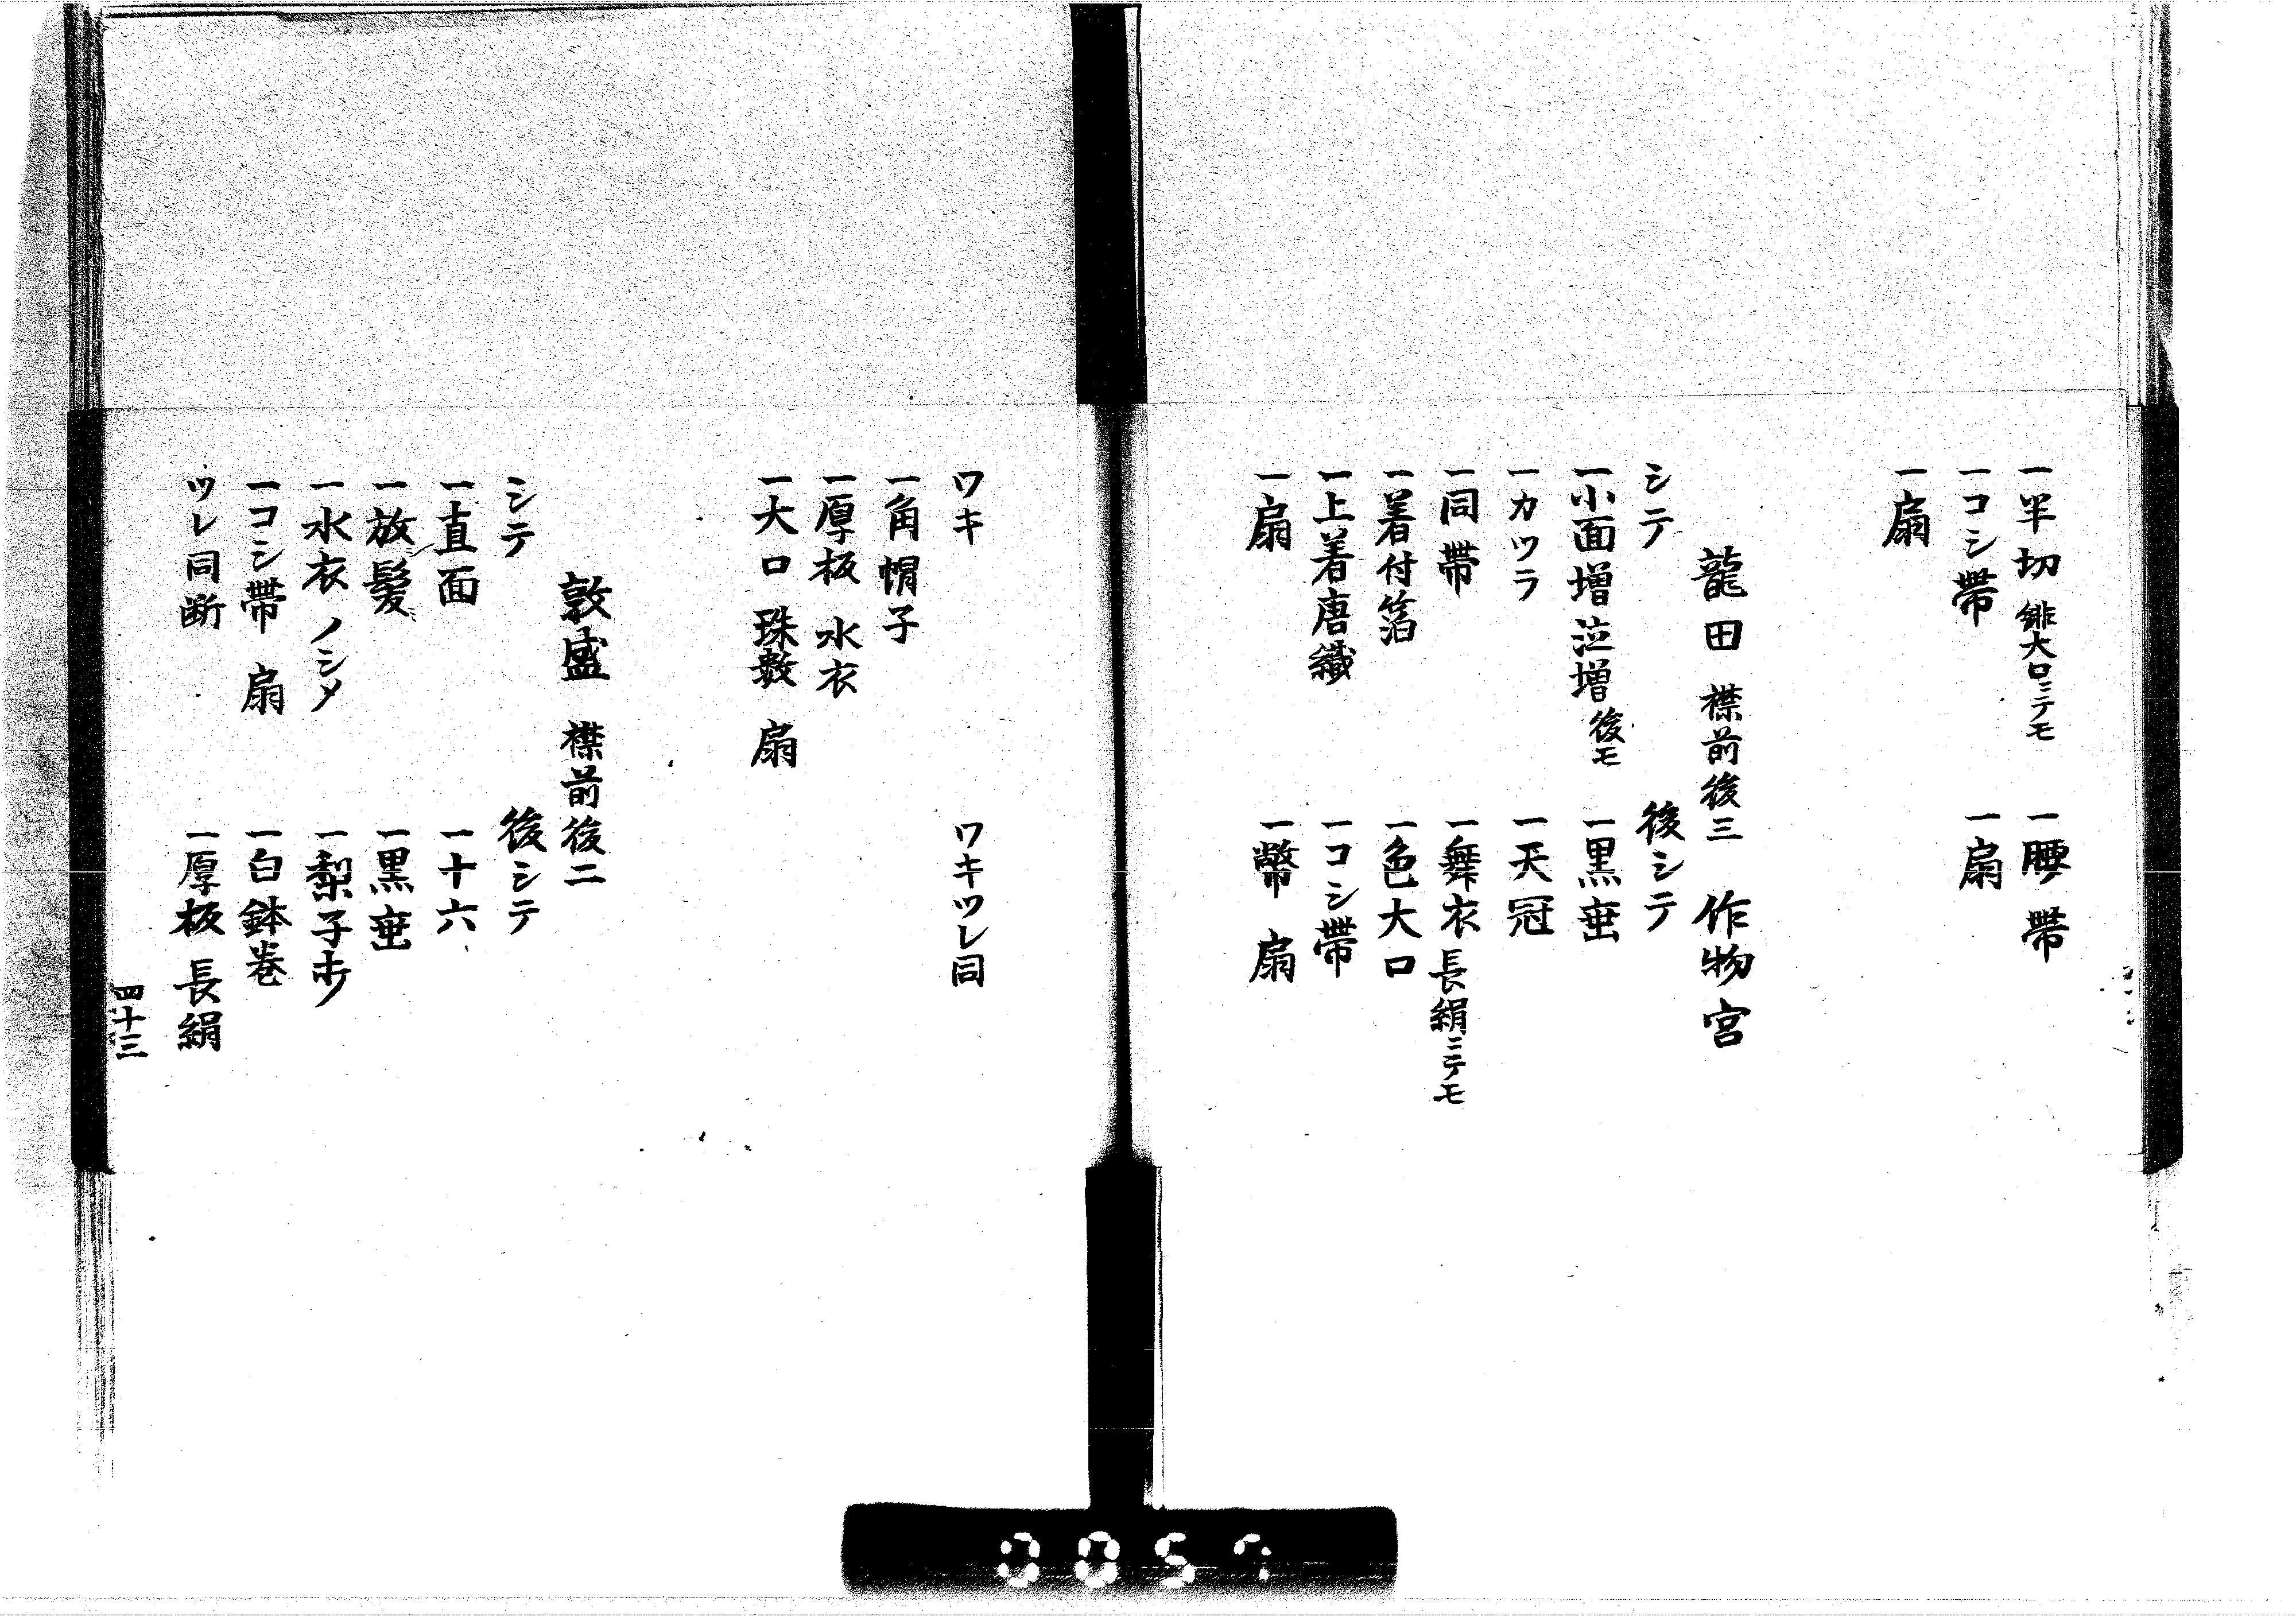 一半切 緋大口ニテモ
一コシ帯
一扇
一腰帯
一扇
龍田 襟前後三 作物宮
シテ
一小面増泣増後モ
一カツラ
一同帯
一着付箔
一上着唐織
一扇
後シテ
一黒垂
一天冠
一舞衣長絹ニテモ
一色大口
一コシ帯
一幣 扇
ワキ
一角帽子
一厚板 水衣
一大口 珠数 扇
ワキツレ同
敦盛 襟前後二
シテ
一直面
一放髪
一水衣 ノシメ
一コシ帯 扇
ツレ同断
後シテ
一十六
一黒垂
一梨子ホ
一白鉢巻
一厚板 長絹
四十三